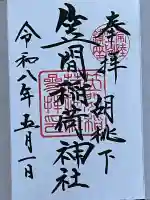 奉拝
胡桃下
笠間稲荷神社
令和八年五月一日